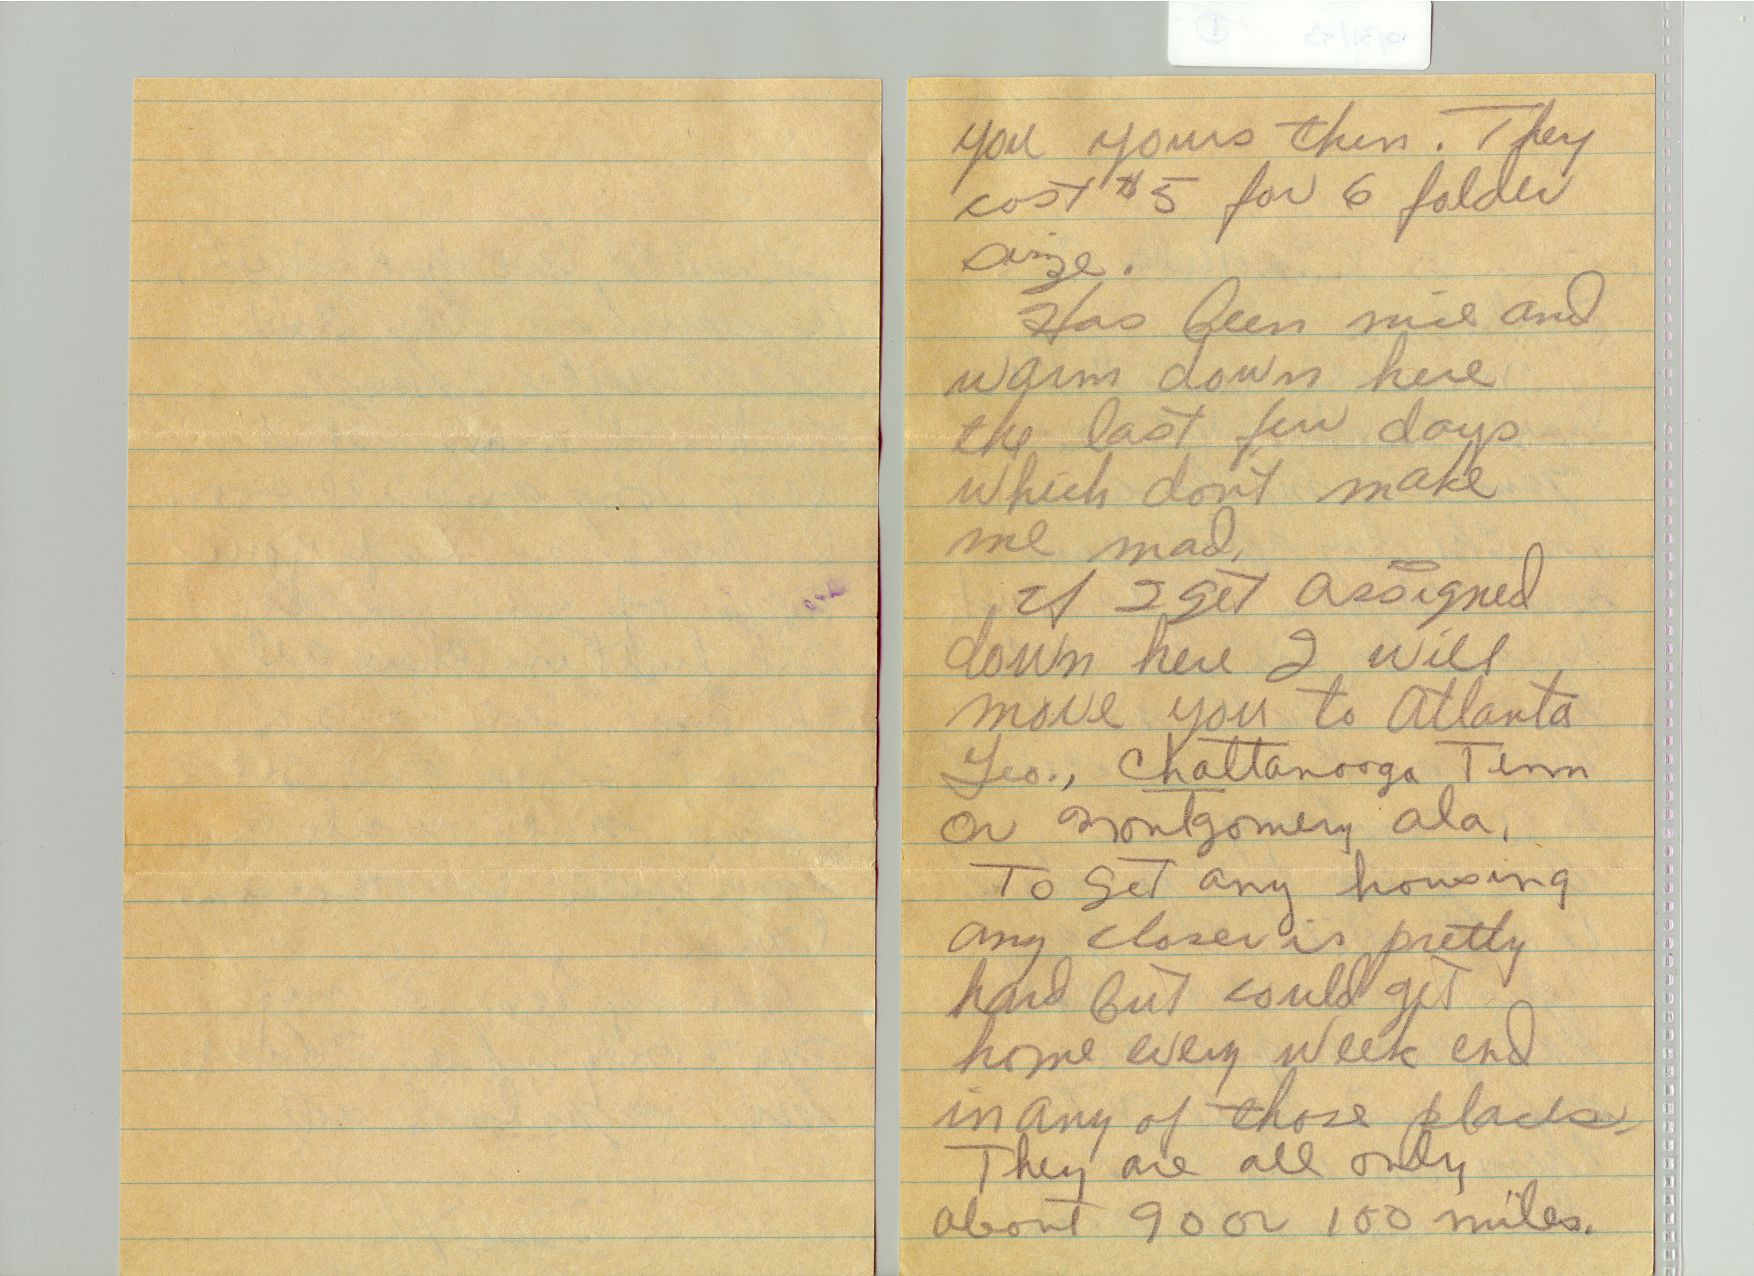 you yours then. They
cost $5 for 6 folder
size.
Has been nice and
warm down here
the last few days
which don't make
me mad.
If I get assigned
down here I will
move you to Atlanta
Geo., Chattanooga Tenn
or Montgomery Ala.
To get any housing
any closer is pretty
hard but could get
home every week end
in any of those places.
They are all only
about 90 or 100 miles.